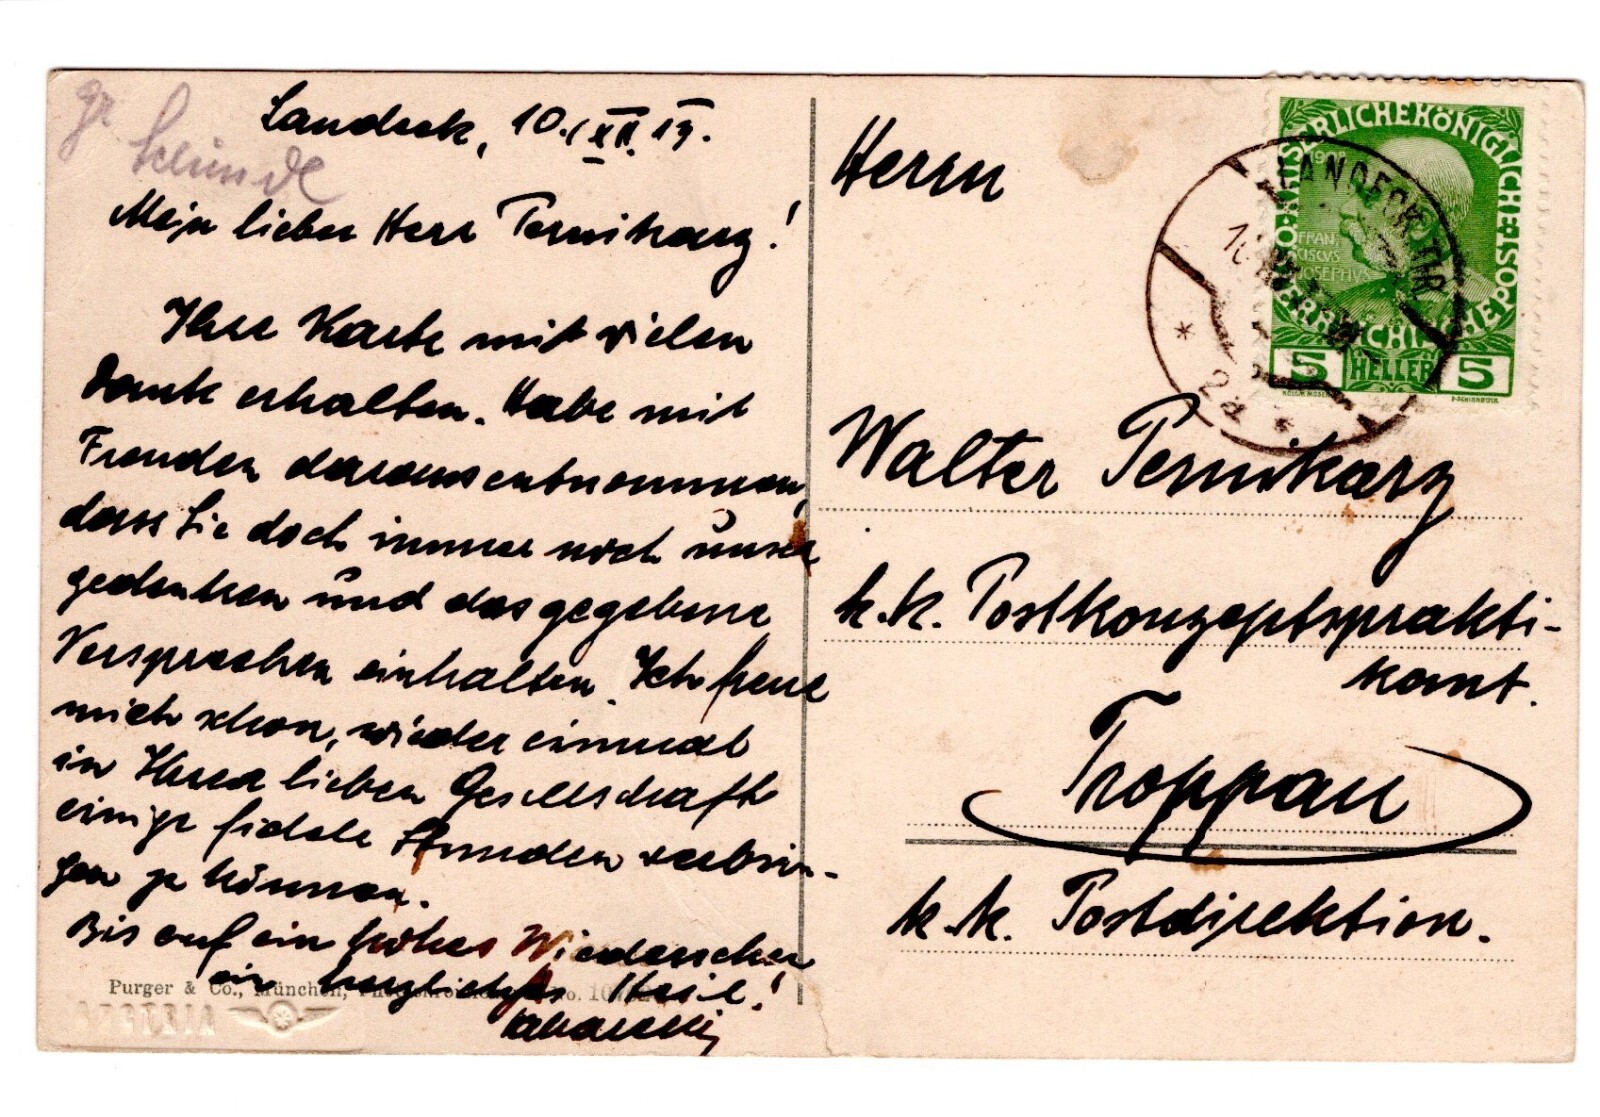 Landeck, 10. XII. 13.
Mein lieber Herr Pernikarz!
Ihre Karte mit vielen
Dank erhalten. Habe mit
Freuden daraus entnommen,
dass Sie doch immer noch unser
gedenken und das gegebene
Versprechen einhalten. Ich freue
mich schon, wieder einmal
in Ihrer lieben Gesellschaft
einige fidele Stunden verbrin-
gen zu können.
Bis auf ein frohes Wiedersehen
ein herzliches Heil!
Purger & Co., München,
Herrn
Walter Pernikarz
k.k. Postkonzeptsprakti-
kant.
Troppau
k.k. Postdirektion.
KAISERLICHEKÖNIGLICHE
ÖSTERREICHISCHE POST
FRAN
CISCUS
JOSEPHUS
5 HELLER 5
LANDECK TIR
* 2a *